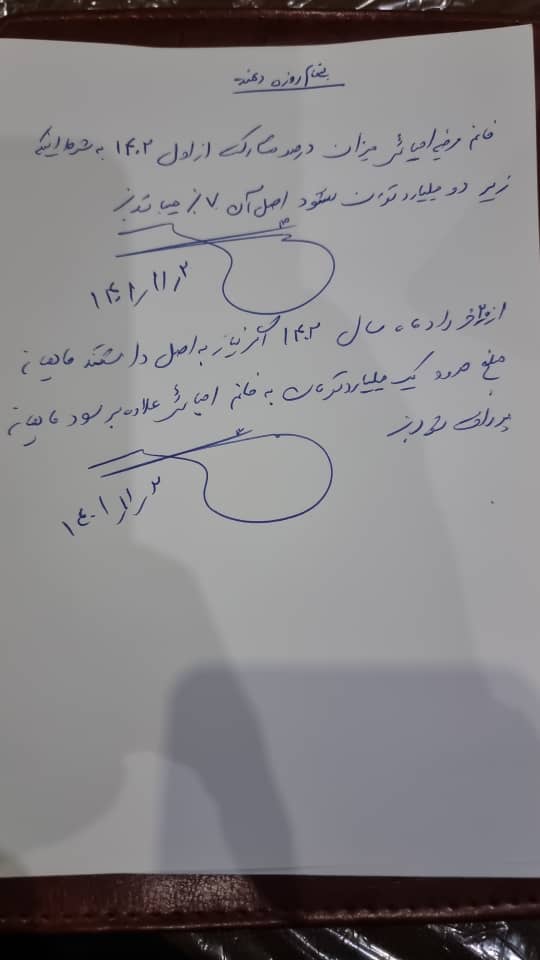 بنام روزی دهنده
خانم مرضیه احیائی میزان درصد مشارکت از اول ۱۴۰۲ به شرط اینکه
زیر دو میلیارد تومان نشود اصل آن ۷٪ میباشد
۱۴۰۱/۱۱/۲
از ۲۰ خرداد ماه سال ۱۴۰۲ اگر نیاز به اصل داشتند ماهیانه
مبلغ حدود یک میلیارد تومان به خانم احیائی علاوه بر سود ماهیانه
پرداخت شود
۱۴۰۱/۱۱/۲